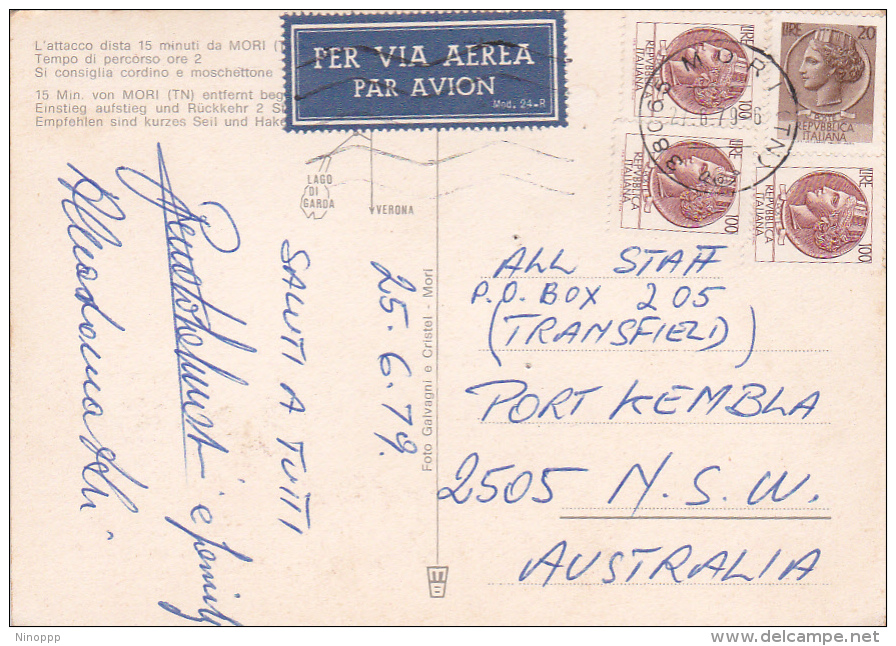 L'attacco dista 15 minuti da MORI (T
Tempo di percórso ore 2
Si consiglia cordino e moschettone
15 Min. von MORI (TN) entfernt beg
Einstieg aufstieg und Rückkehr 2 St
Empfehlen sind kurzes Seil und Hake
PER VIA AEREA
PAR AVION
Mod. 24-R
LIRE 100
REPVBBLICA
ITALIANA
LIRE 20
REPVBBLICA
ITALIANA
LIRE 100
REPVBBLICA
ITALIANA
LIRE 100
REPVBBLICA
ITALIANA
38065 MORI (TN)
6 79
LAGO
DI
GARDA
VERONA
25.6.79.
SALUTI A TUTTI
e family
Foto Galvagni e Cristel - Mori
ALL STAFF
P.O. BOX 205
(TRANSFIELD)
PORT KEMBLA
2505 N.S.W.
AUSTRALIA
Ninoppp
delcampe.net